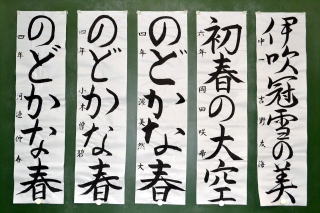 伊吹冠雪の美
中一 吉野友海
初春の大空
六年 岡田咲希
のどかな春
四年
のどかな春
四年
のどかな春
四年